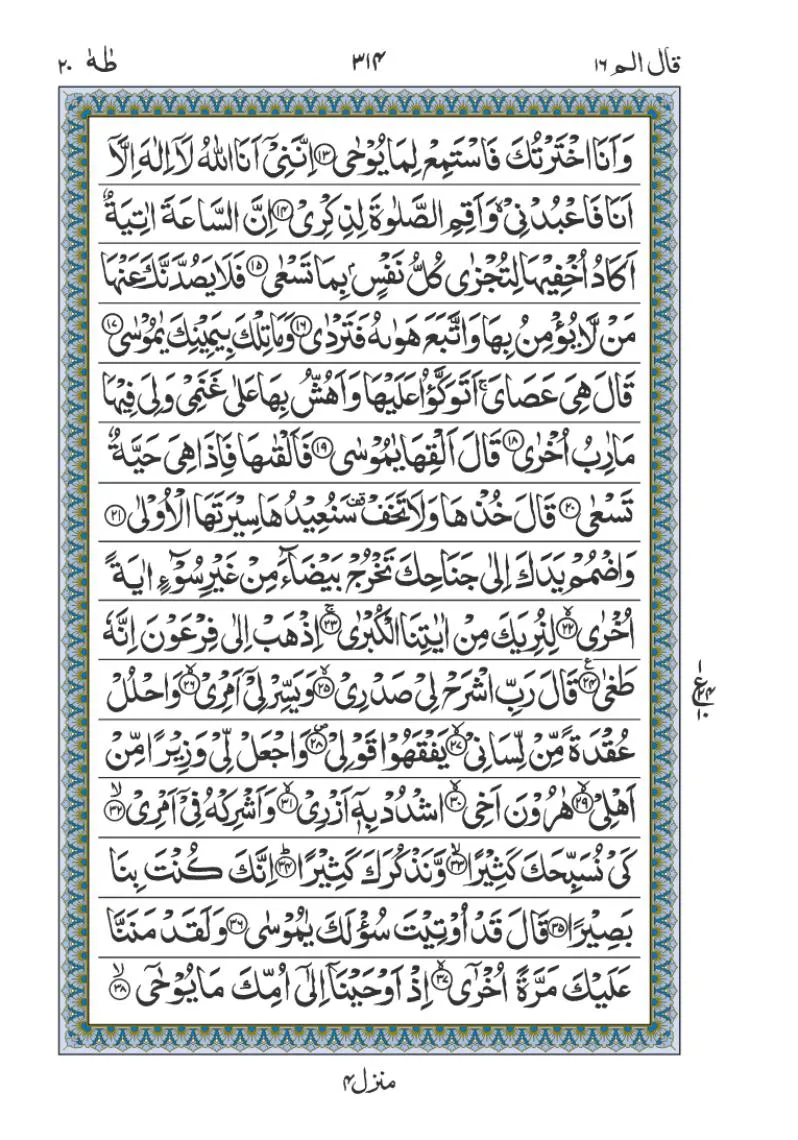 قال الم ١٦ ٣١٤ طٰهٰ ٢٠
وَاَنَا اخْتَرْتُكَ فَاسْتَمِعْ لِمَا يُوْحٰى ﴿١٣﴾ اِنَّنِىْۤ اَنَا اللّٰهُ لَاۤ اِلٰهَ اِلَّاۤ
اَنَا فَاعْبُدْنِىْ ۙ وَاَقِمِ الصَّلٰوةَ لِذِكْرِىْ ﴿١٤﴾ اِنَّ السَّاعَةَ اٰتِيَةٌ
اَكَادُ اُخْفِيْهَا لِتُجْزٰى كُلُّ نَفْسٍۭ بِمَا تَسْعٰى ﴿١٥﴾ فَلَا يَصُدَّنَّكَ عَنْهَا
مَنْ لَّا يُؤْمِنُ بِهَا وَاتَّبَعَ هَوٰٮهُ فَتَرْدٰى ﴿١٦﴾ وَمَا تِلْكَ بِيَمِيْنِكَ يٰمُوْسٰى ﴿١٧﴾
قَالَ هِىَ عَصَاىَ ۚ اَتَوَكَّؤُا عَلَيْهَا وَاَهُشُّ بِهَا عَلٰى غَنَمِىْ وَلِىَ فِيْهَا
مَاٰرِبُ اُخْرٰى ﴿١٨﴾ قَالَ اَلْقِهَا يٰمُوْسٰى ﴿١٩﴾ فَاَلْقٰٮهَا فَاِذَا هِىَ حَيَّةٌ
تَسْعٰى ﴿٢٠﴾ قَالَ خُذْهَا وَلَا تَخَفْ ۥقف سَنُعِيْدُهَا سِيْرَتَهَا الْاُوْلٰى ﴿٢١﴾
وَاضْمُمْ يَدَكَ اِلٰى جَنَاحِكَ تَخْرُجْ بَيْضَآءَ مِنْ غَيْرِ سُوْٓءٍ اٰيَةً
اُخْرٰى ۙ﴿٢٢﴾ لِنُرِيَكَ مِنْ اٰيٰتِنَا الْكُبْرٰى ۚ﴿٢٣﴾ اِذْهَبْ اِلٰى فِرْعَوْنَ اِنَّهٗ
طَغٰى ﴿٢٤﴾ ع قَالَ رَبِّ اشْرَحْ لِىْ صَدْرِىْ ۙ﴿٢٥﴾ وَيَسِّرْ لِىْۤ اَمْرِىْ ۙ﴿٢٦﴾ وَاحْلُلْ
١ ع ٢٤ ١٠
عُقْدَةً مِّنْ لِّسَانِىْ ۙ﴿٢٧﴾ يَفْقَهُوْا قَوْلِىْ ۖ﴿٢٨﴾ وَاجْعَلْ لِّىْ وَزِيْرًا مِّنْ
اَهْلِىْ ۙ﴿٢٩﴾ هٰرُوْنَ اَخِى ۙ﴿٣٠﴾ اشْدُدْ بِهٖۤ اَزْرِىْ ۙ﴿٣١﴾ وَاَشْرِكْهُ فِىْۤ اَمْرِىْ ۙ﴿٣٢﴾
كَىْ نُسَبِّحَكَ كَثِيْرًا ۙ﴿٣٣﴾ وَّنَذْكُرَكَ كَثِيْرًا ؕ﴿٣٤﴾ اِنَّكَ كُنْتَ بِنَا
بَصِيْرًا ﴿٣٥﴾ قَالَ قَدْ اُوْتِيْتَ سُؤْلَكَ يٰمُوْسٰى ﴿٣٦﴾ وَلَقَدْ مَنَنَّا
عَلَيْكَ مَرَّةً اُخْرٰٓى ۙ﴿٣٧﴾ اِذْ اَوْحَيْنَاۤ اِلٰٓى اُمِّكَ مَا يُوْحٰٓى ۙ﴿٣٨﴾
منزل ٤